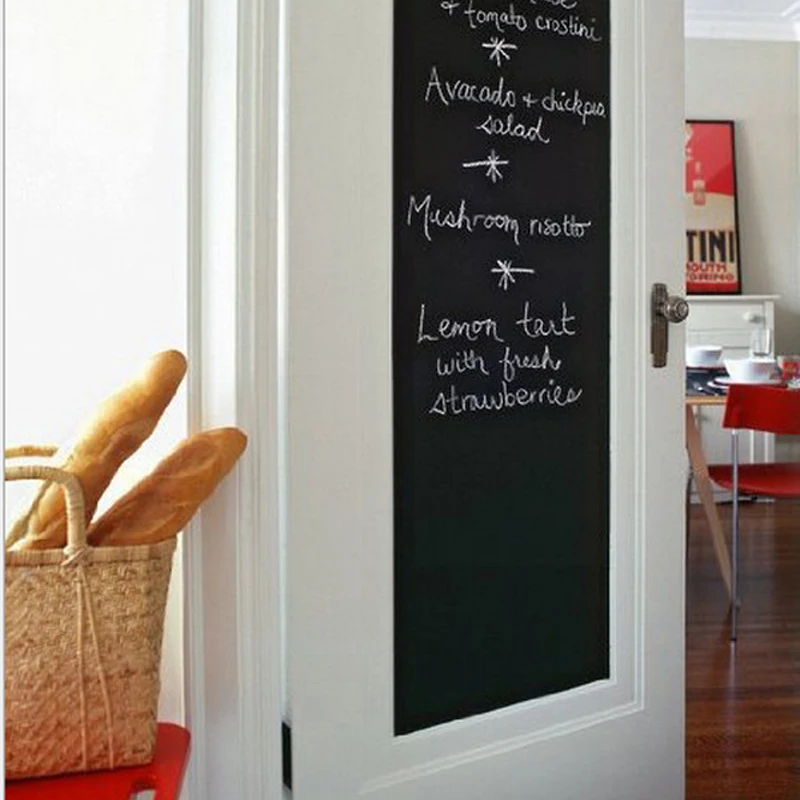 & tomato crostini
Avacado + chickpea
salad
Mushroom risotto
Lemon tart
with fresh
strawberries
TINI
MOUTH
TORINO